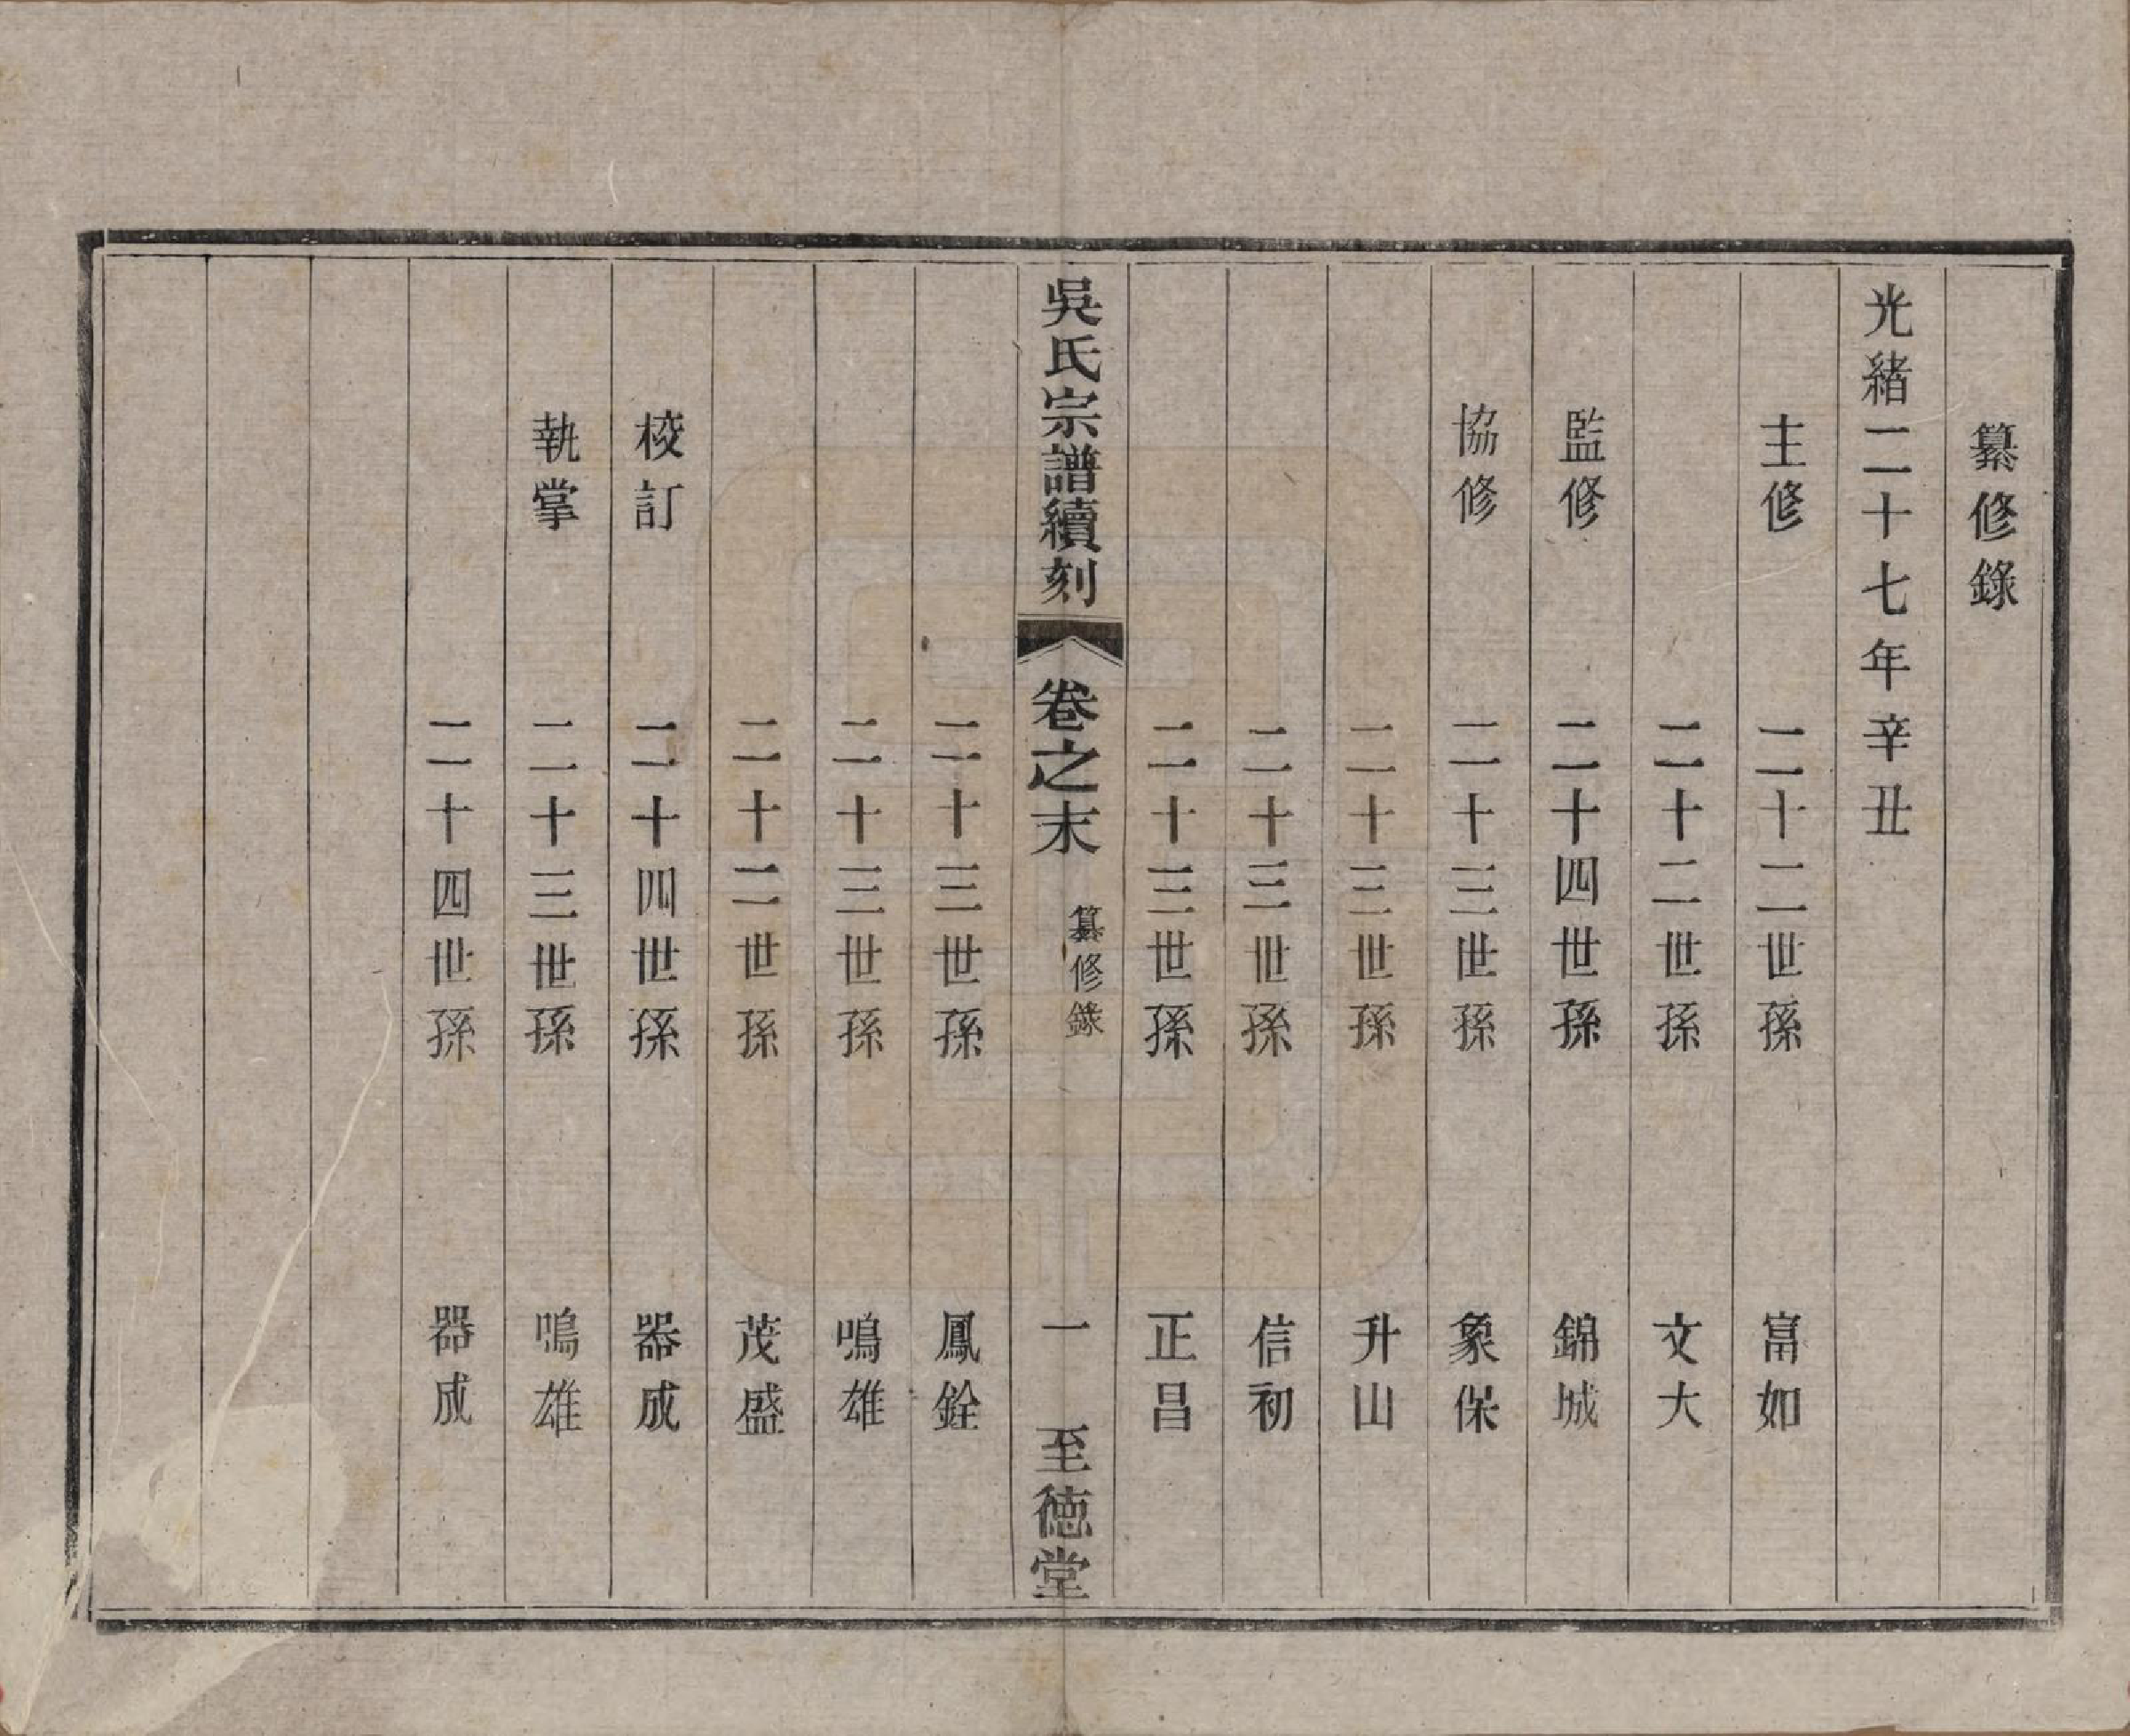 纂修錄
光緒二十七年辛丑
主修 二十二世孫 富如
二十二世孫 文大
監修 二十四世孫 錦城
協修 二十三世孫 象保
二十三世孫 升山
二十三世孫 信初
二十三世孫 正昌
吳氏宗譜續刻 卷之末 纂修錄 一 至德堂
二十三世孫 鳳銓
二十三世孫 鳴雄
二十二世孫 茂盛
校訂 二十四世孫 器成
執掌 二十三世孫 鳴雄
二十四世孫 器成